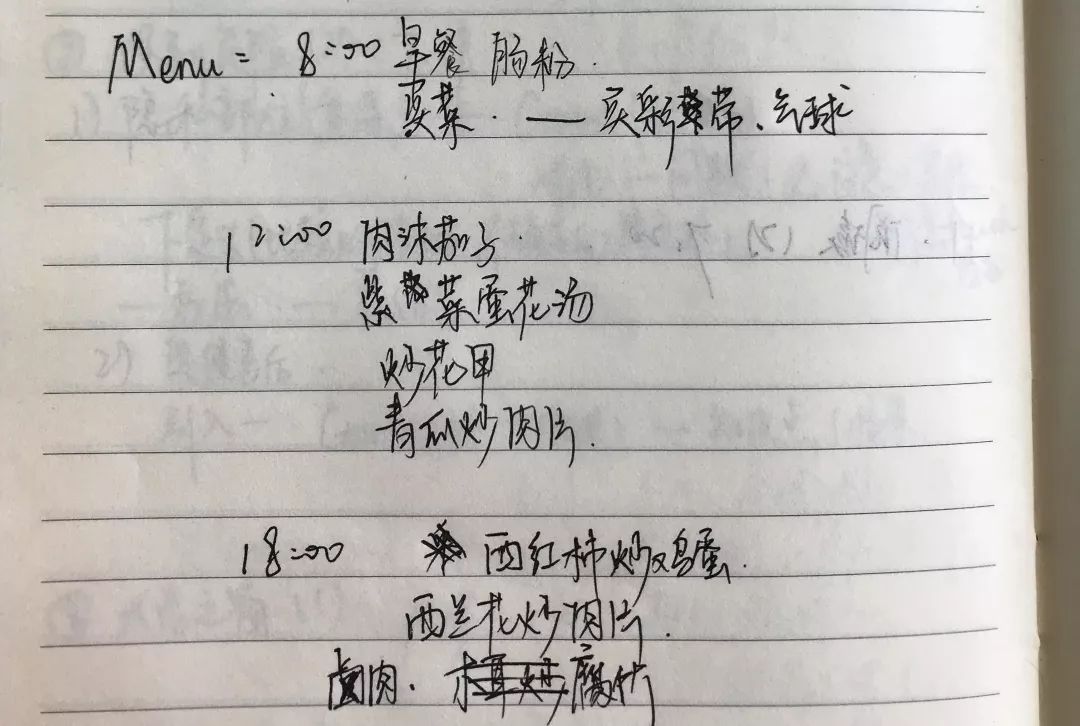 Menu = 8:00 早餐 肠粉.
买菜. — 买彩带、气球
12:00 肉沫茄子.
紫菜蛋花汤
炒花甲
青瓜炒肉片.
18:00 西红柿炒鸡蛋.
西兰花炒肉片.
卤肉. 木耳炒腐竹